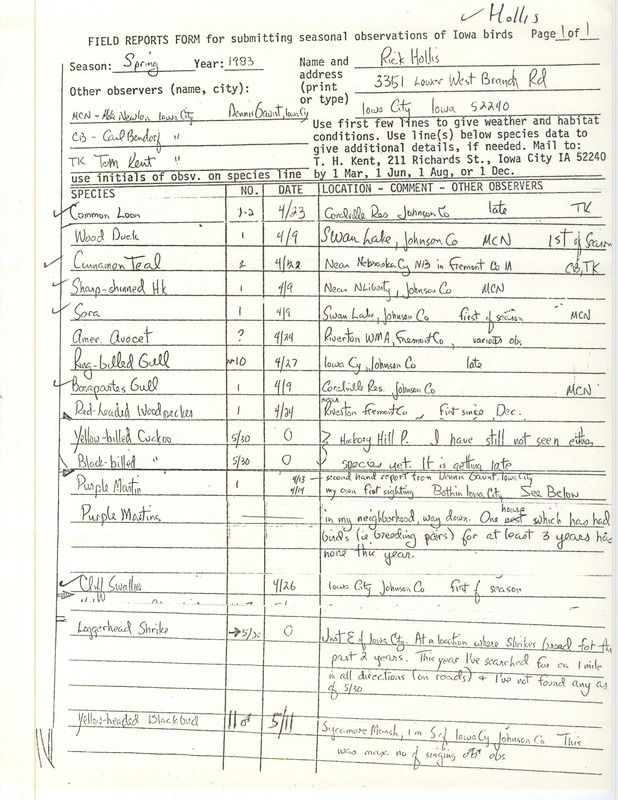 ✓ Hollis
FIELD REPORTS FORM for submitting seasonal observations of Iowa birds Page 1 of 1
Season: Spring Year: 1983
Name and address (print or type) Rick Hollis
3351 Lower West Branch Rd
Iowa City Iowa 52240
Other observers (name, city):
MCN - Mike Newlon Iowa City Dennis Gaunt, Iowa City
CB - Carl Bendorf "
TK Tom Kent "
use initials of obsv. on species line
Use first few lines to give weather and habitat
conditions. Use line(s) below species data to
give additional details, if needed. Mail to:
T. H. Kent, 211 Richards St., Iowa City IA 52240
by 1 Mar, 1 Jun, 1 Aug, or 1 Dec.
SPECIES NO. DATE LOCATION - COMMENT - OTHER OBSERVERS
✓ Common Loon 1-2 4/23 Coralville Res Johnson Co late TK
Wood Duck 1 4/9 Swan Lake, Johnson Co MCN 1st of season
✓ Cinnamon Teal 2 4/22 Near Nebraska Cy NB in Fremont Co IA CB, TK
✓ Sharp-shinned Hk 1 4/9 Near N Liberty, Johnson Co MCN
✓ Sora 1 4/9 Swan Lake, Johnson Co first of season MCN
Amer. Avocet ? 4/24 Riverton WMA, Fremont Co, various obs.
Ring-billed Gull ~10 4/27 Iowa Cy, Johnson Co late
✓ Bonapartes Gull 1 4/9 Coralville Res. Johnson Co MCN
Red-headed Woodpecker 1 4/24 near Riverton Fremont Co, First since Dec.
Yellow-billed Cuckoo 5/30 0 } Hickory Hill P. I have still not seen either
Black-billed " 5/30 0 } species yet. It is getting late
Purple Martin 1 4/13 — second hand report from Dennis Gaunt, Iowa City
4/14 my own first sighting Both in Iowa City See Below
Purple Martins in my neighborhood, way down. One house which has had
birds (ie breeding pairs) for at least 3 years has
none this year.
✓ Cliff Swallow 4/26 Iowa City Johnson Co first of season
Loggerhead Shrike → 5/30 0 Just E of Iowa City. At a location where Shrikes bred for the
past 2 years. This year I've searched for ca 1 mile
in all directions (on roads) & I've not found any as
of 5/30
Yellow-headed Blackbird 11 ♂ 5/11 Sycamore Marsh, 1 m S of Iowa Cy Johnson Co This
was max. no of singing ♂♂ obs